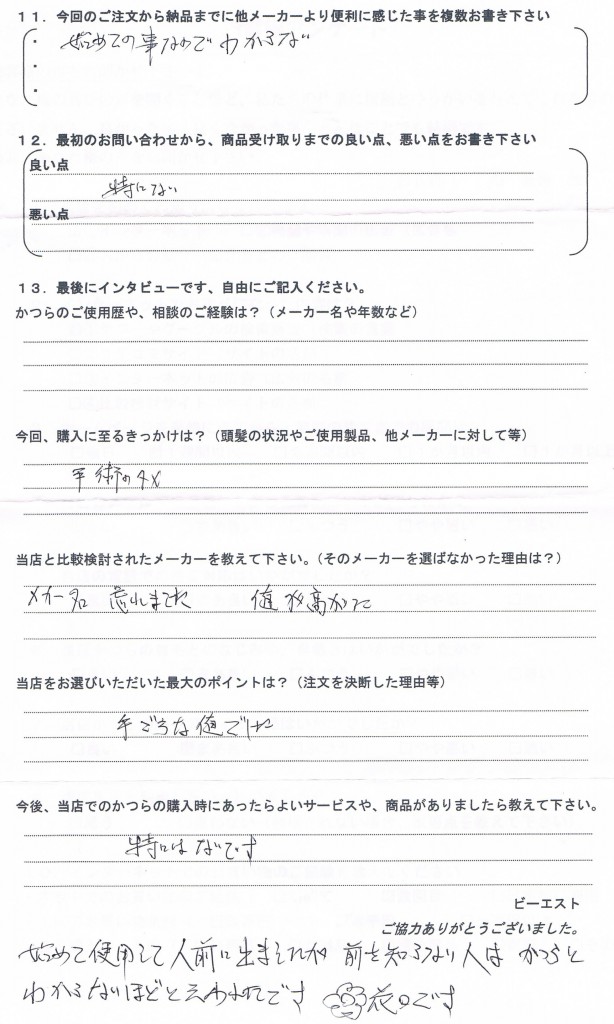 １１．今回のご注文から納品までに他メーカーより便利に感じた事を複数お書き下さい
・始めての事なのでわからない
・
・
１２．最初のお問い合わせから、商品受け取りまでの良い点、悪い点をお書き下さい
良い点
特にない
悪い点
１３．最後にインタビューです、自由にご記入ください。
かつらのご使用歴や、相談のご経験は？（メーカー名や年数など）
今回、購入に至るきっかけは？（頭髪の状況やご使用製品、他メーカーに対して等）
手術の為
当店と比較検討されたメーカーを教えて下さい。（そのメーカーを選ばなかった理由は？）
メーカー名 忘れました 値が高かった
当店をお選びいただいた最大のポイントは？（注文を決断した理由等）
手ごろな値でした
今後、当店でのかつらの購入時にあったらよいサービスや、商品がありましたら教えて下さい。
特にはないです
ビーエスト
ご協力ありがとうございました。
始めて使用して人前に出ましたが 前を知らない人は かつらと
わからないほどと言われたです 花〇です